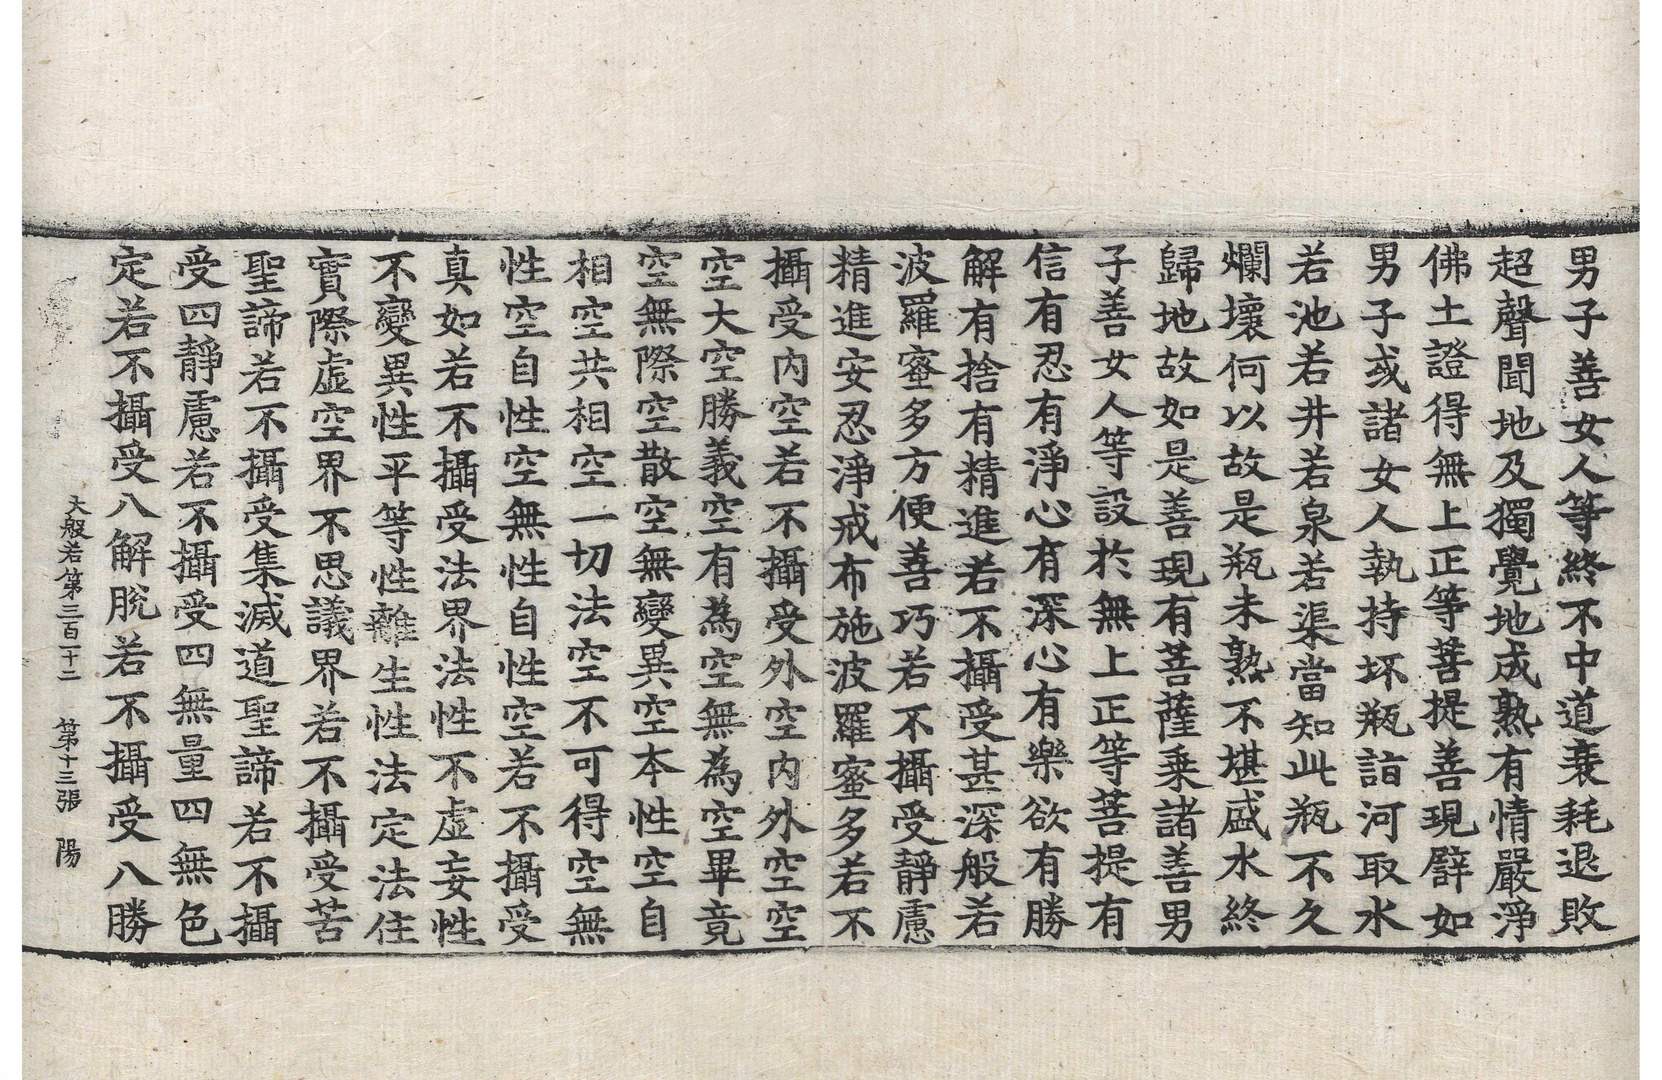 男子善女人等終不中道衰耗退敗
超聲聞地及獨覺地成熟有情嚴淨
佛土證得無上正等菩提善現譬如
男子或諸女人執持坏瓶詣河取水
若池若井若泉若渠當知此瓶不久
爛壞何以故是瓶未熟不堪盛水終
歸地故如是善現有菩薩乗諸善男
子善女人等設於無上正等菩提有
信有忍有淨心有深心有樂欲有勝
解有捨有精進若不攝受甚深般若
波羅蜜多方便善巧若不攝受靜慮
精進安忍淨戒布施波羅蜜多若不
攝受内空若不攝受外空内外空空
空大空勝義空有為空無為空畢竟
空無際空散空無變異空本性空自
相空共相空一切法空不可得空無
性空自性空無性自性空若不攝受
真如若不攝受法界法性不虛妄性
不變異性平等性離生性法定法住
實際虛空界不思議界若不攝受苦
聖諦若不攝受集滅道聖諦若不攝
受四靜慮若不攝受四無量四無色
定若不攝受八解脫若不攝受八勝
大般若第三百十二 第十三張 陽